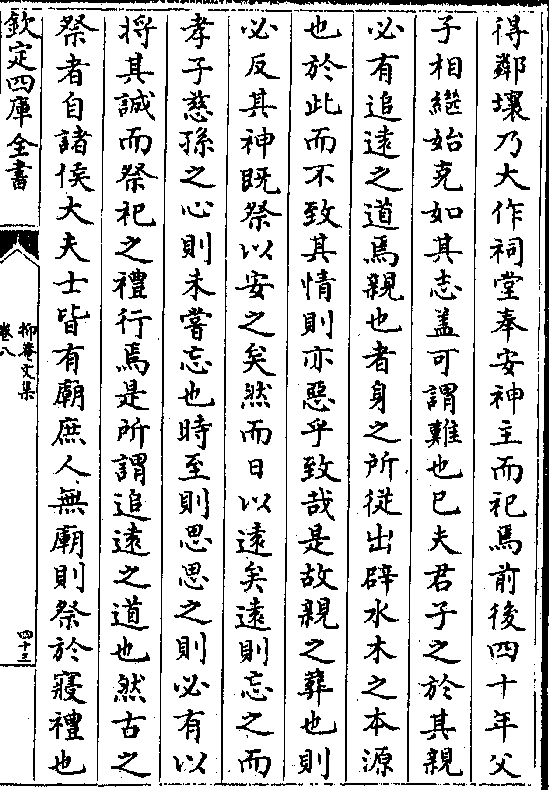 得鄰壤乃大作祠堂奉安神主而祀焉前後四十年父
子相繼始克如其志蓋可謂難也已夫君子之於其親
必有追遠之道焉親也者身之所從出辟水木之本源
也於此而不致其情則亦惡乎致哉是故親之葬也則
必反其神既祭以安之矣然而日以遠矣遠則忘之而
孝子慈孫之心則未嘗忘也時至則思思之則必有以
將其誠而祭祀之禮行焉是所謂追遠之道也然古之
祭者自諸侯大夫士皆有廟庶人無廟則祭於寢禮也
欽定四庫全書
抑菴文集
卷八
四十三